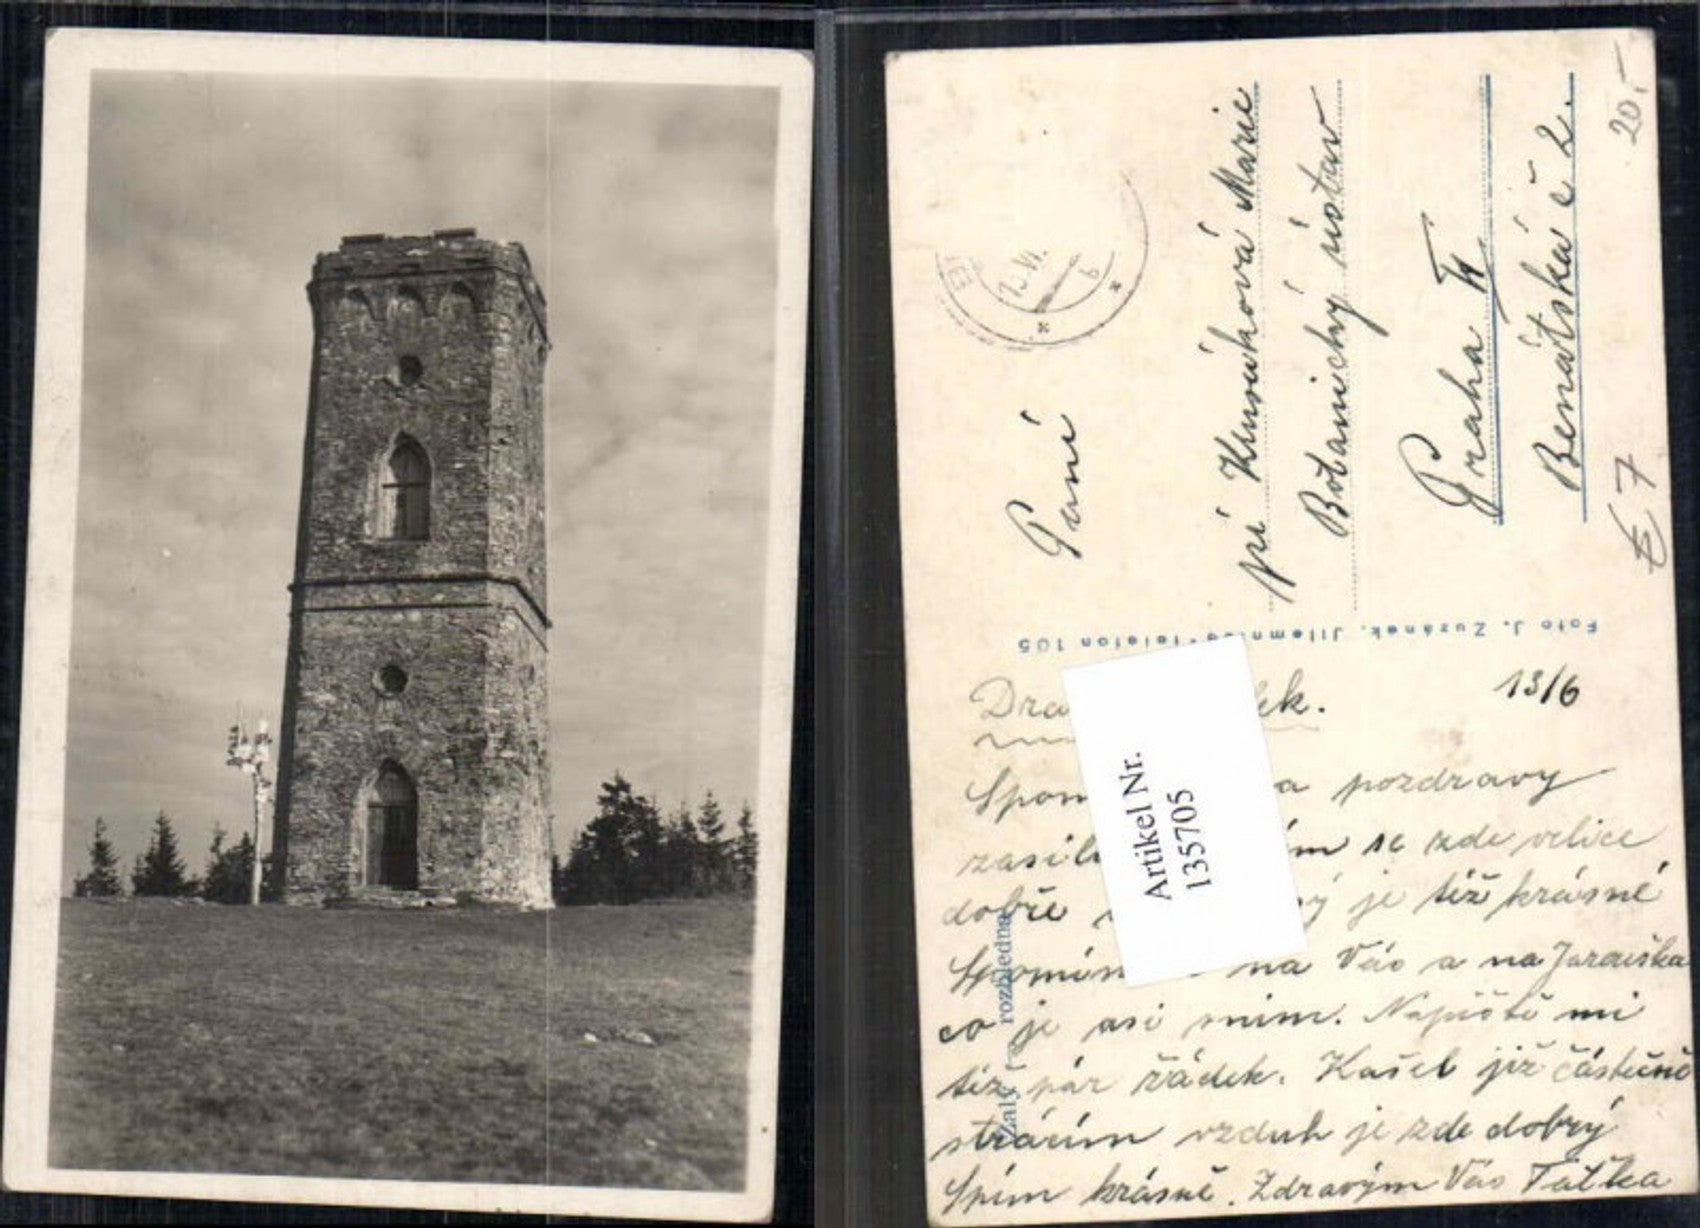 20,-
Paní
pí Klusáková Marie
Botanický ústav
Praha II
Benátská č 2.
€ 7
Foto J. Zuzánek, Jilemnice-telefon 105
Žalý rozhledna
Artikel Nr.
135705
13/6
a pozdravy
se zde velice
dobře je též krásné
na Vás a na Jarouška
co je asi s ním. Napiště mi
též pár řádek. Kašel již částečně
strácím vzduh je zde dobrý
Spím krásně. Zdravým Vás Taťka